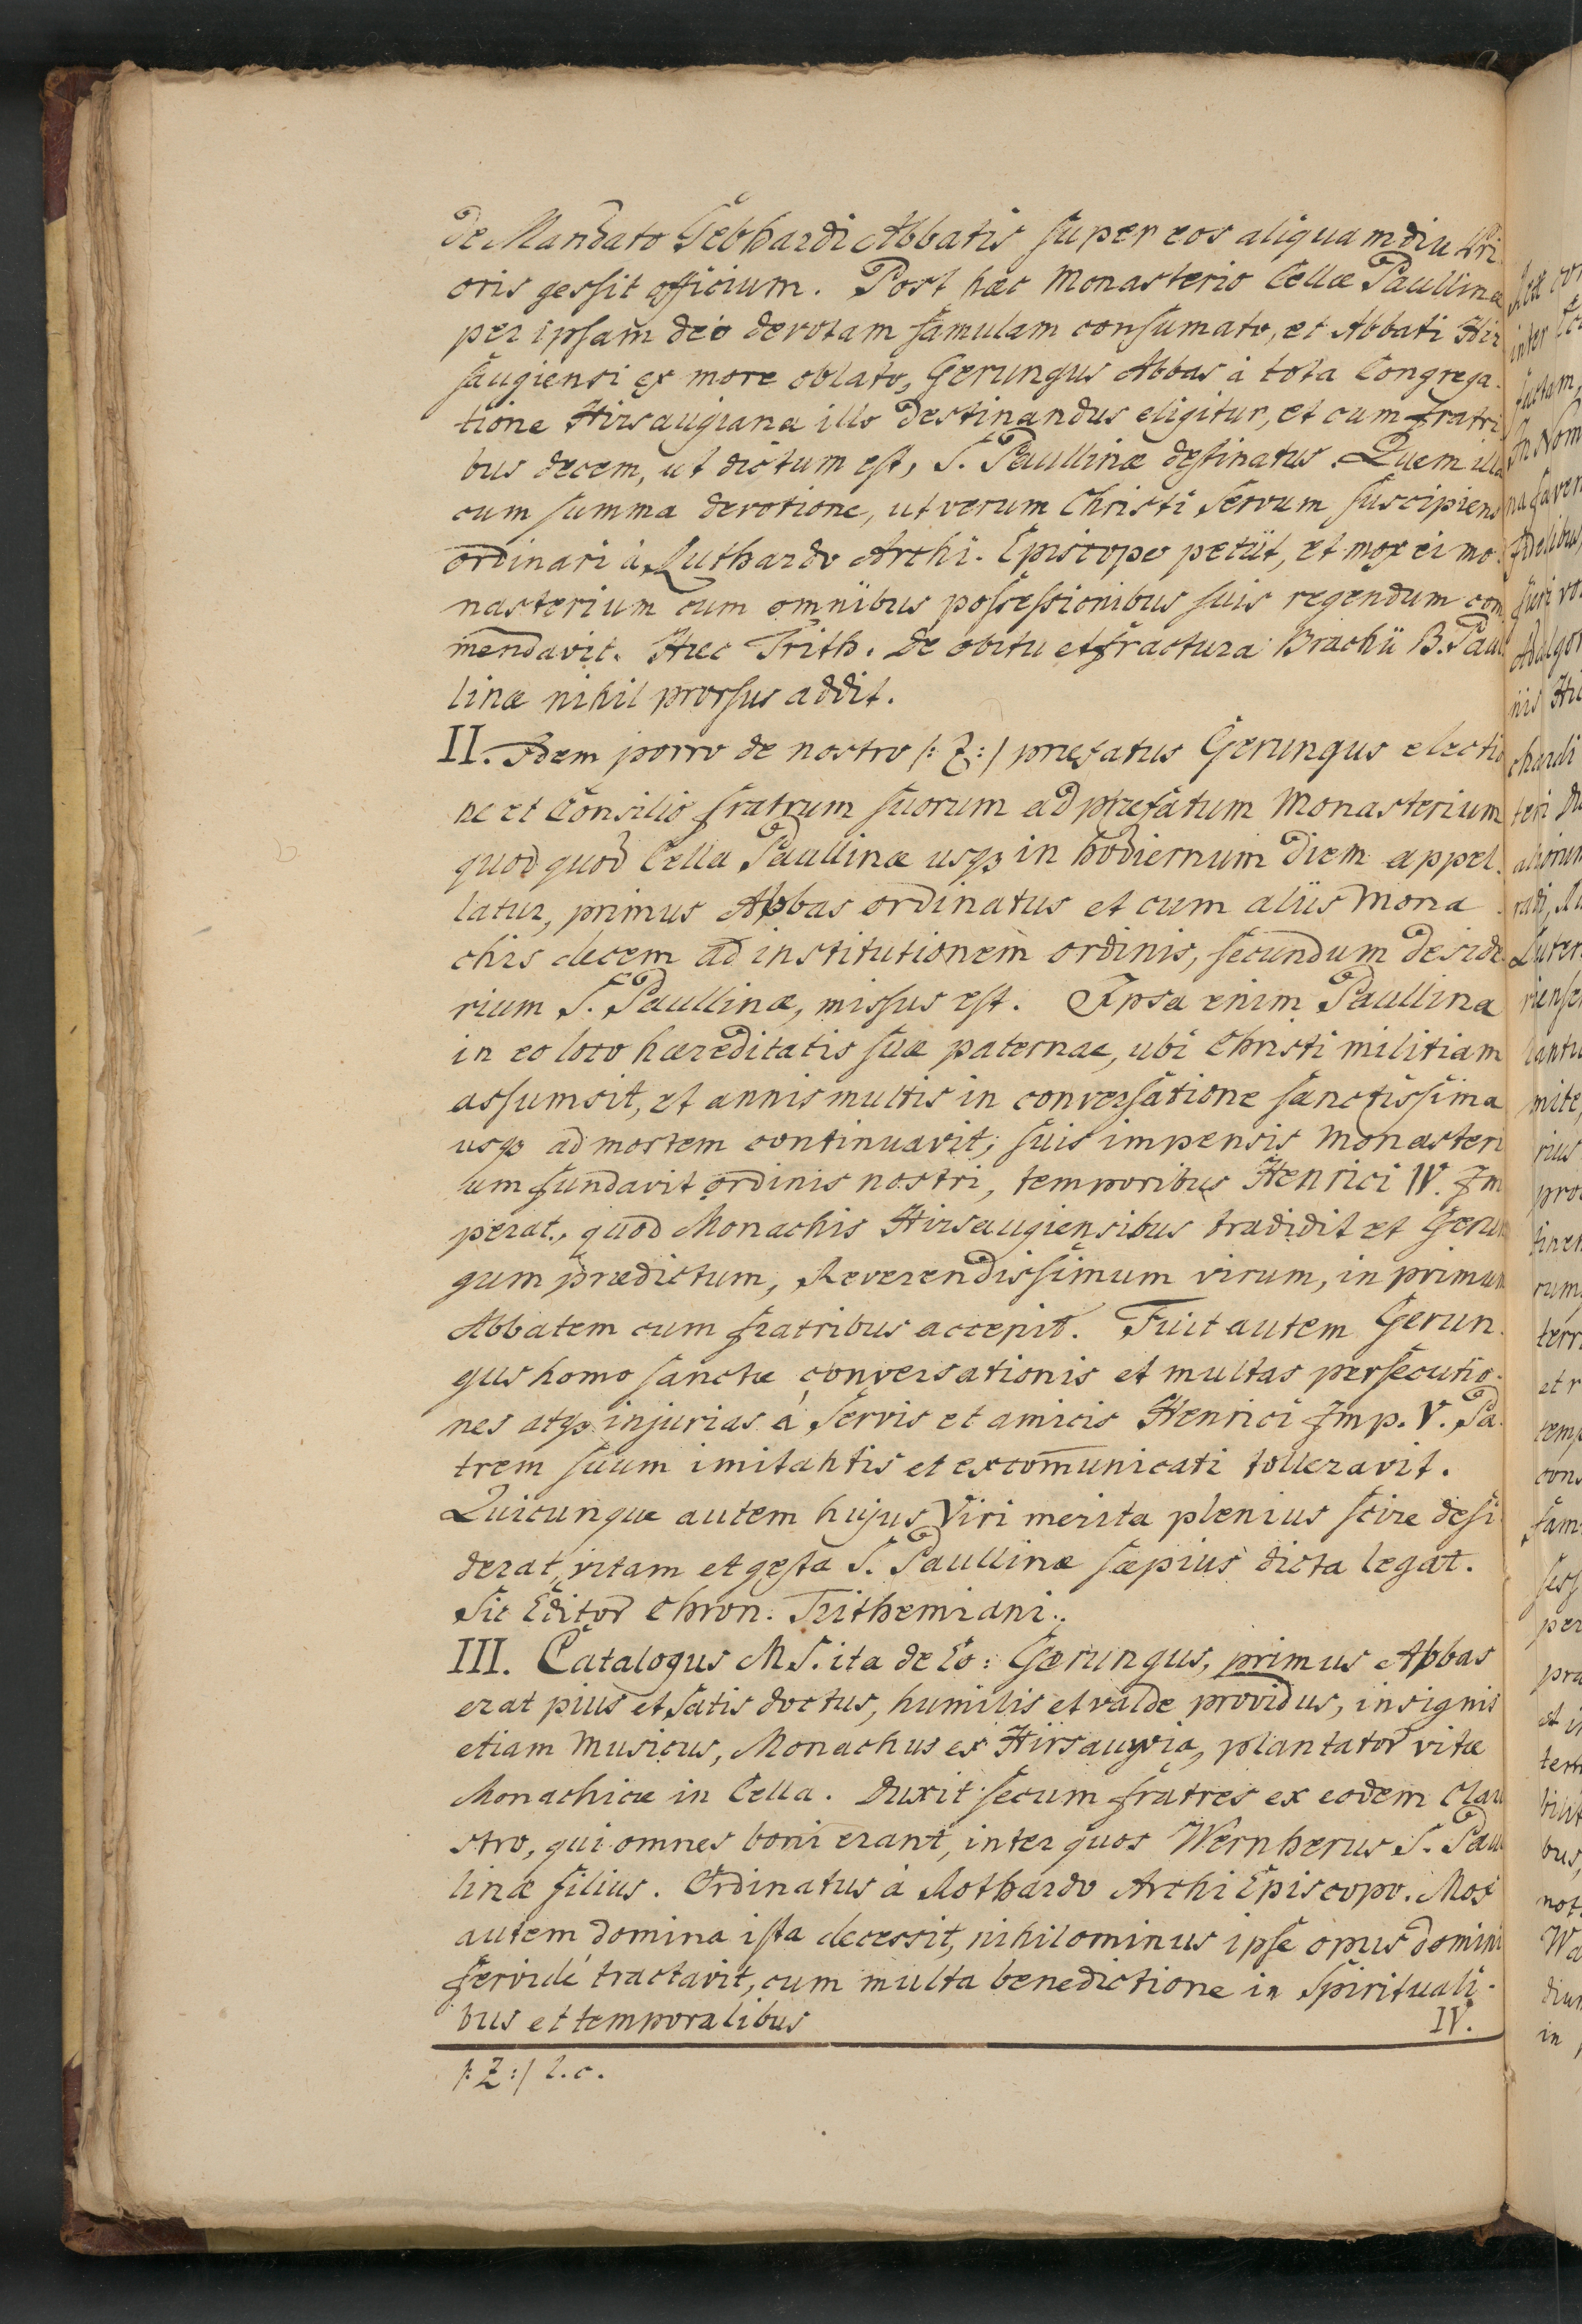 de Mandato Gebhardi Abbatis super eos aliquamdiu Pri
oris gessit officium. Post hæc Monasterio Cellæ Paullinæ
per ipsam deo devotam famulam consumato, et Abbati Hir
saugiensi ex more oblato, Gerungus Abbas à tota Congrega-
tione Hirsaugiana illo destinandus eligitur, et cum fratri
bus decem, ut dictum est, S. Paullinæ destinatus. Quem illa
cum summa devotione, ut verum Christi servum suscipiens
ordinari à Luthardo Archi-Episcopo petiit, et mox ei mo-
nasterium cum omnibus possessionibus suis regendum com
mendavit. Hæc Trith. de obitu et fractura Brachii B. Paul
linæ nihil prorsus addit.
II. Idem porro de nostro /: Z :/ præfatus Gerungus electio
ne et Consilio fratrum suorum ad præfatum Monasterium
quod quod Cella Paullinæ usq in hodiernum diem appel-
latur, primus Abbas ordinatus et cum aliis Mona-
chis decem ad institutionem ordinis, secundum deside
rium S. Paullinæ, missus est. Ipsa enim Paullina
in eo loco hæreditatis suæ paternae, ubi Christi militiam
assumsit, et annis multis in conversatione sanctissima
usq ad mortem continuavit; suis impensis Monasteri
um fundavit ordinis nostri, temporibus Henrici IV. Im
perat., quod Monachis Hirsaugiensibus tradidit et Gerun
gum prædictum, Reverendissimum virum, in primum
Abbatem cum fratribus accepit. Fuit autem Gerun-
gus homo sanctæ conversationis et multas persecutio-
nes atq injurias à servis et amicis Henrici Imp. V. Pa-
trem suum imitantis et excom̄unicati tolleravit.
Quicunque autem hujus Viri merita plenius scire desi
derat, vitam et gesta S. Paullinæ sæpius dicta legat.
Sic Editor Chron. Trithemiani.
III. Catalogus M S. ita de Eo: Gerungus, primus Abbas
erat pius et satis doctus, humilis et valde providus, insignis
etiam Musicus, Monachus ex Hirsaugia, plantator vitæ
Monachicæ in Cella. Duxit secum fratres ex eodem Clau
stro, qui omnes boni erant, inter quos Wernherus S. Paul
linæ filius. Ordinatus à Rothardo Archi Episcopo. Mox
autem domina ista decessit, nihilominus ipse opus domini
fervide tractavit, cum multa benedictione in Spirituali-
bus et temporalibus
IV.
/: Z :/ l. c.